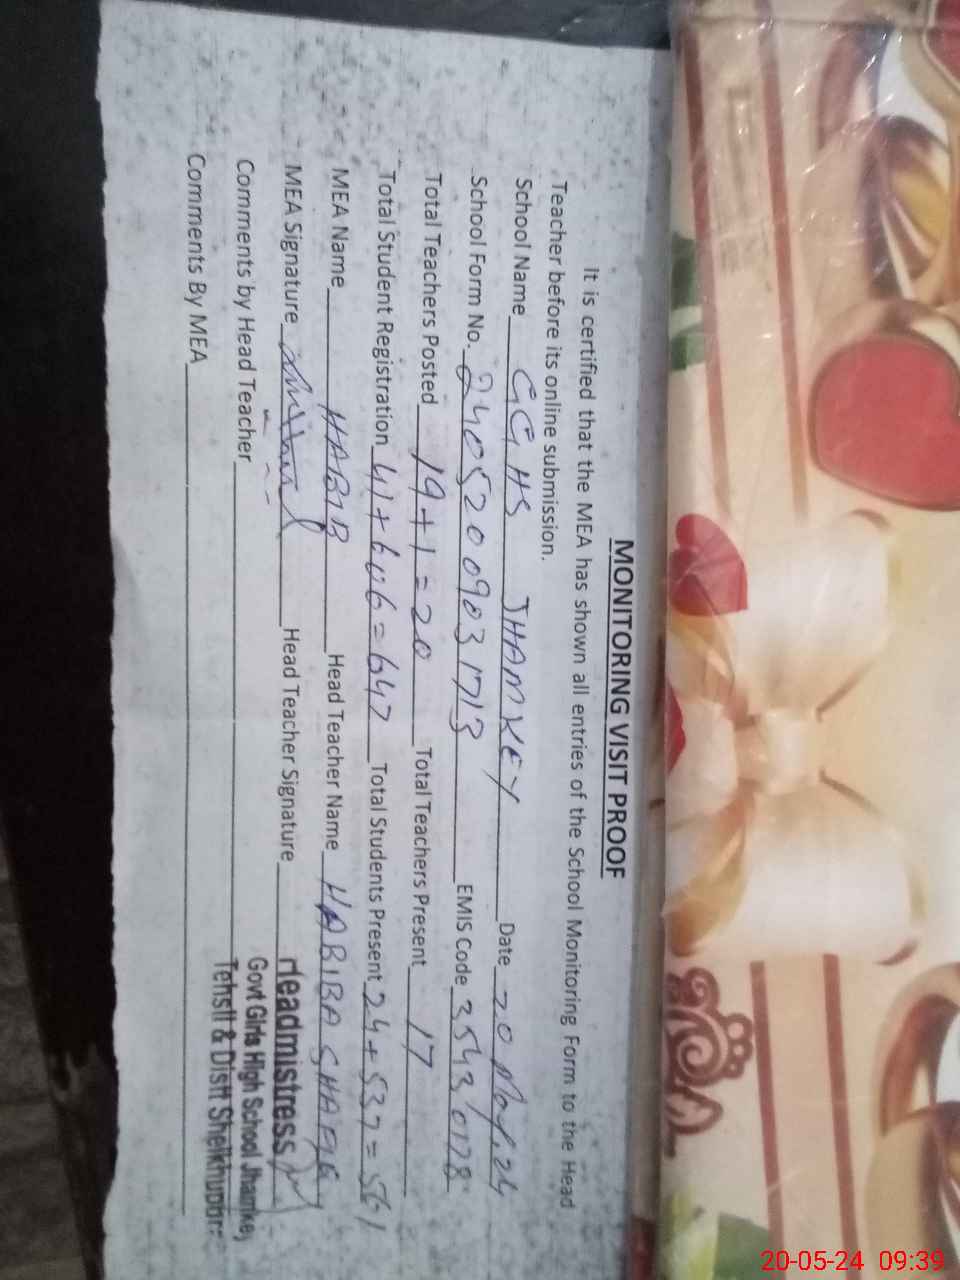 MONITORING VISIT PROOF
It is certified that the MEA has shown all entries of the School Monitoring Form to the Head
Teacher before its online submission.
School Name GGHS JHAMKEY Date 20 May, 24
School Form No. 240520090317 13 EMIS Code 35430178
Total Teachers Posted 19+1=20 Total Teachers Present 17
Total Student Registration 41+606=647 Total Students Present 24+537=561
MEA Name HABIB Head Teacher Name HABIBA
MEA Signature Head Teacher Signature Headmistress
Comments by Head Teacher Govt Girls High School Jhamkey
Tehsil & Distt Sheikhupura
Comments By MEA
20-05-24 09:39